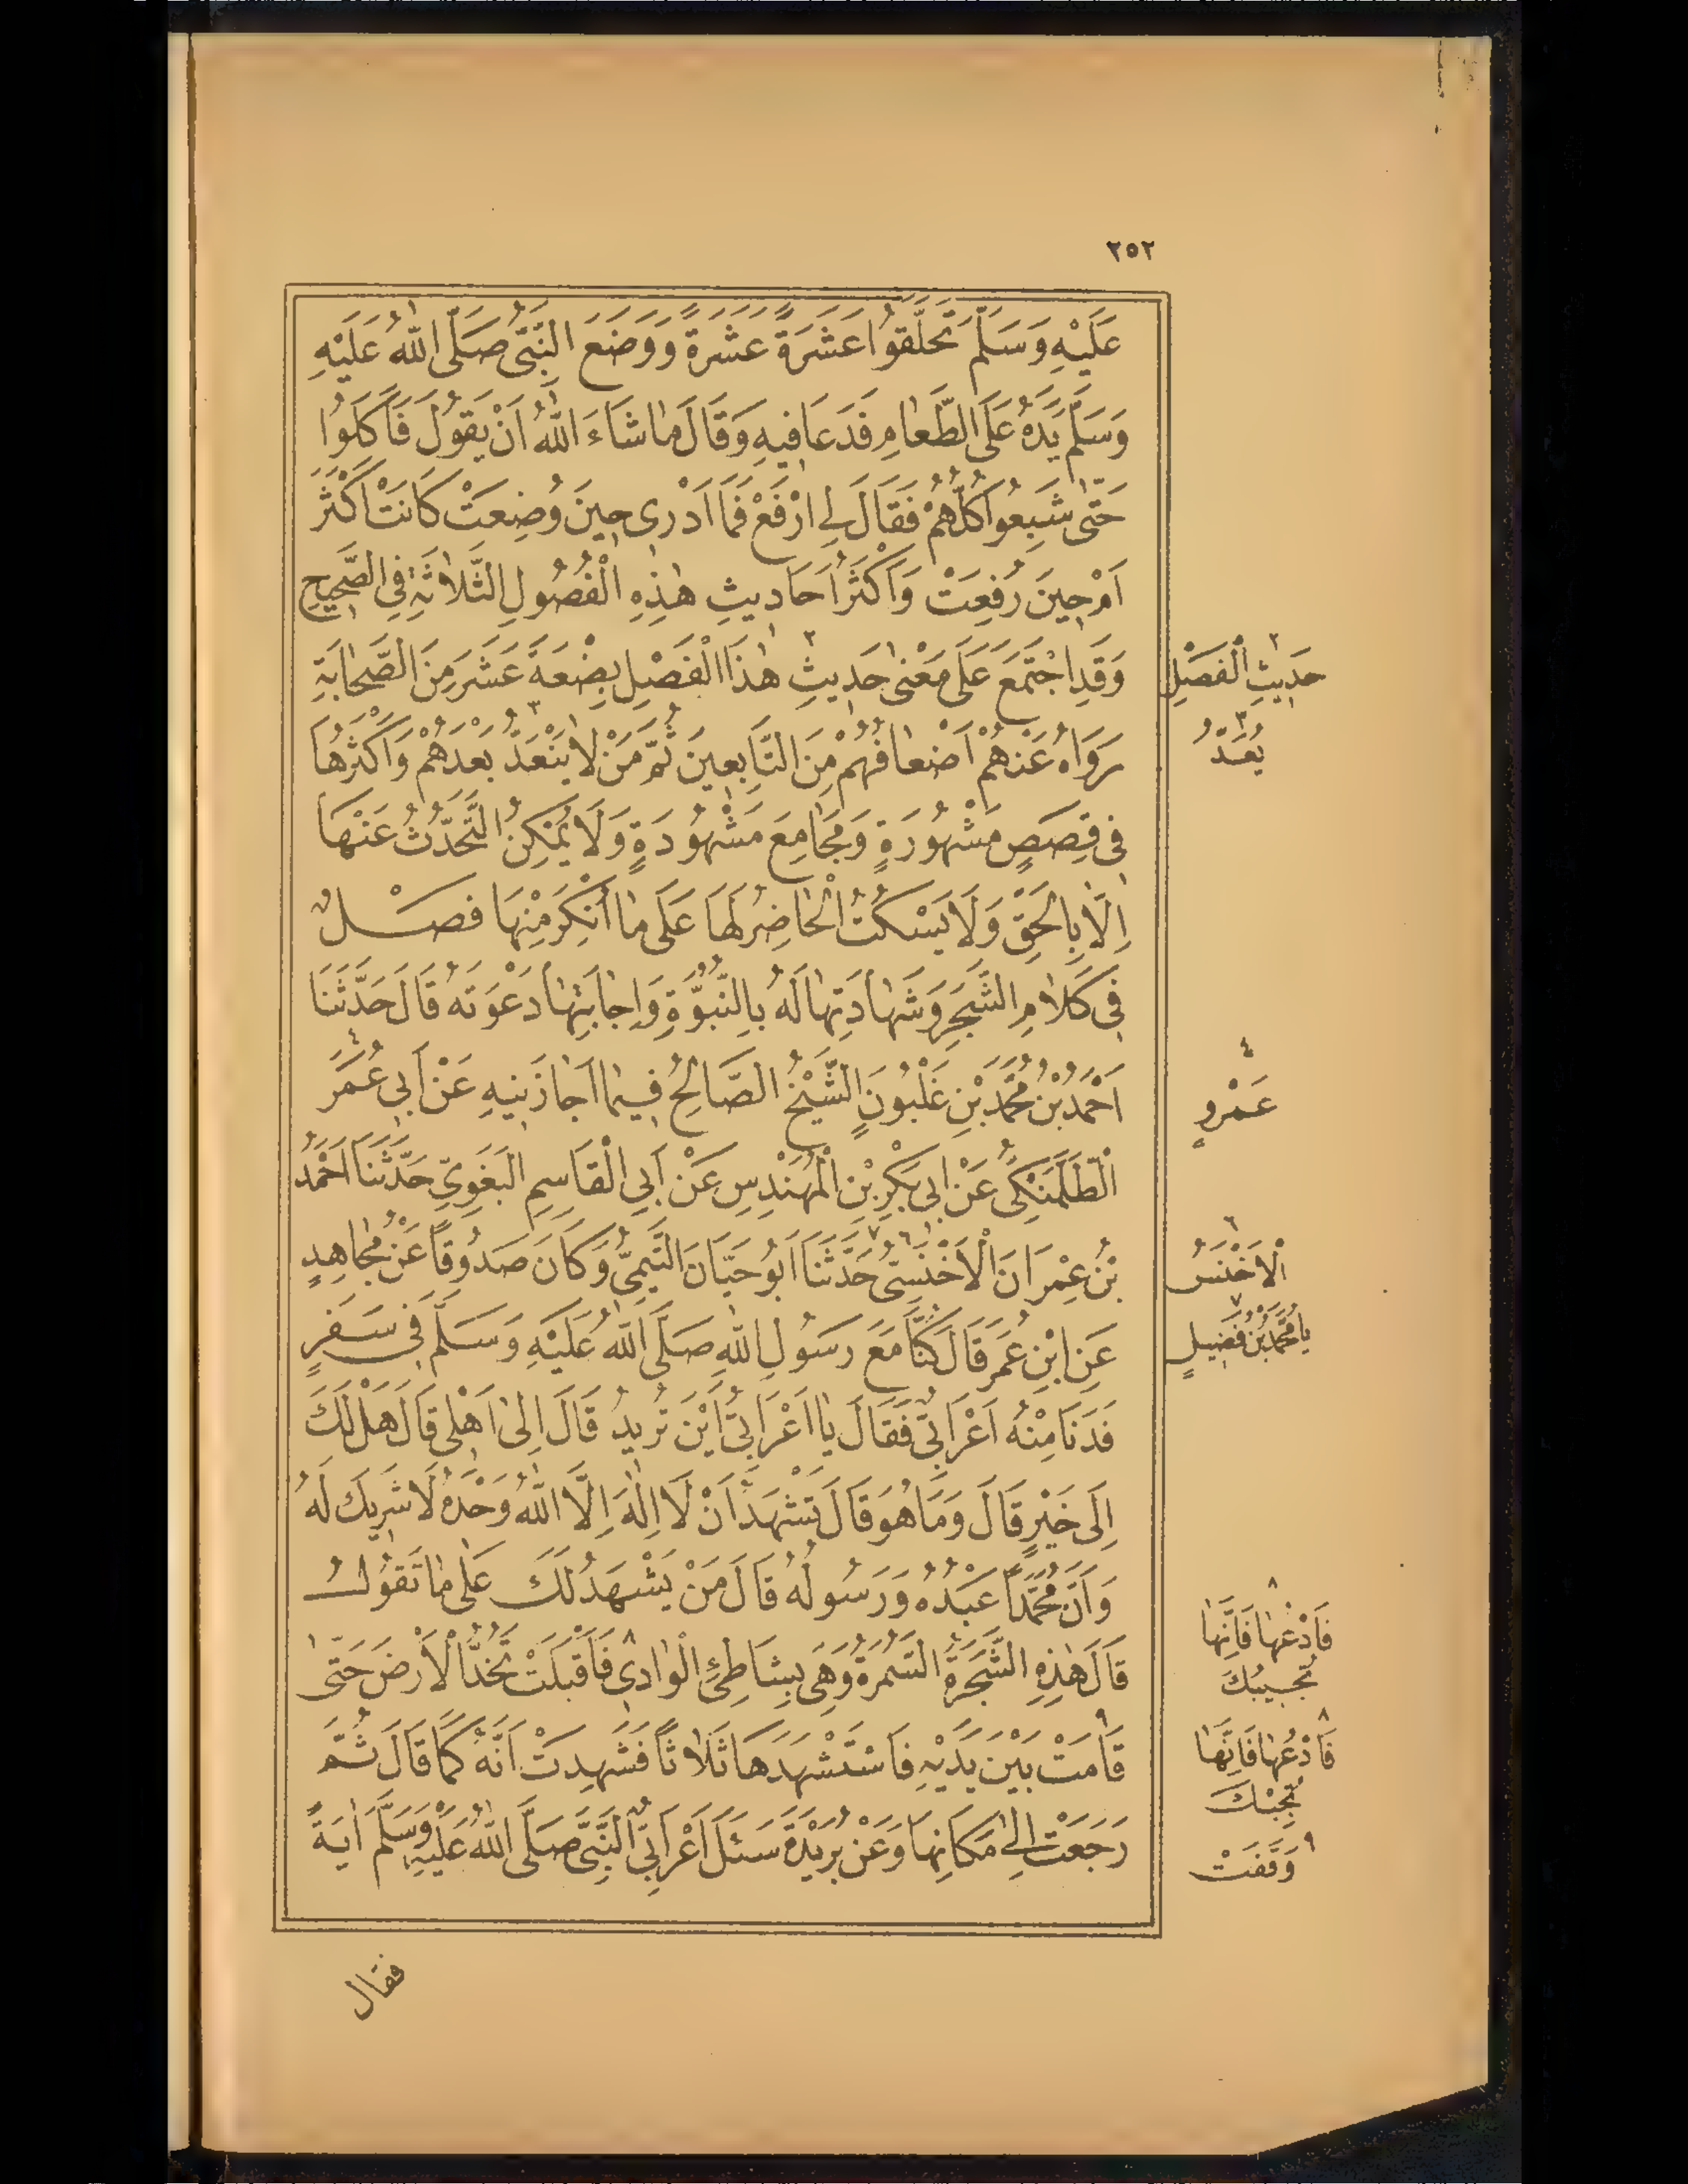 ٢٥٢
عَلَيْهِ وَسَلَّمَ تَحَلَّقُوا عَشَرَةً عَشَرَةً وَوَضَعَ النَّبِيُّ صَلَّى اللهُ عَلَيْهِ
وَسَلَّمَ يَدَهُ عَلَى الطَّعَامِ فَدَعَا فِيهِ وَقَالَ مَا شَاءَ اللهُ اَنْ يَقُولَ فَاَكَلُوا
حَتّٰى شَبِعُوا كُلُّهُمْ فَقَالَ لِى ارْفَعْ فَمَا اَدْرِى حِينَ وُضِعَتْ كَانَتْ اَكْثَرَ
اَمْ حِينَ رُفِعَتْ وَاَكْثَرُ اَحَادِيثِ هٰذِهِ الْفُصُولِ الثَّلَاثَةِ فِى الصَّحِيحِ
وَقَدِ اجْتَمَعَ عَلَى مَعْنٰى حَدِيثِ ٢ هٰذَا الْفَصْلِ بِضْعَةَ عَشَرَ مِنَ الصَّحَابَةِ
رَوَاهُ عَنْهُمْ اَضْعَافُهُمْ مِنَ التَّابِعِينَ ثُمَّ مَنْ لَا يَنْعَدُّ ٣ بَعْدَهُمْ وَاَكْثَرُهَا
فِى قِصَصٍ مَشْهُورَةٍ وَمَجَامِعَ مَشْهُودَةٍ وَلَا يُمْكِنُ التَّحَدُّثُ عَنْهَا
اِلَّا بِالْحَقِّ وَلَا يَسْكُتُ الْحَاضِرُ لَهَا عَلَى مَا اُنْكِرَ مِنْهَا فصـــلٌ
فِى كَلَامِ الشَّجَرِ وَشَهَادَتِهَا لَهُ بِالنُّبُوَّةِ وَاِجَابَتِهَا دَعْوَتَهُ قَالَ حَدَّثَنَا
اَحْمَدُ بْنُ مُحَمَّدِ بْنِ غَلْبُونٍ الشَّيْخُ الصَّالِحُ فِيمَا اَجَازَنِيهِ عَنْ اَبِى عُمَرَ ٤
الطَّلَمَنْكِىِّ عَنْ اَبِى بَكْرِ بْنِ الْمُهَنْدِسِ عَنْ اَبِى الْقَاسِمِ الْبَغَوِىِّ حَدَّثَنَا اَحْمَدُ
بْنُ عِمْرَانَ الْاَخْنَسِىُّ ٦ حَدَّثَنَا ٧ اَبُو حَيَّانَ التَّيْمِىُّ وَكَانَ صَدُوقًا عَنْ مُجَاهِدٍ
عَنِ ابْنِ عُمَرَ قَالَ كُنَّا مَعَ رَسُولِ اللهِ صَلَّى اللهُ عَلَيْهِ وَسَلَّمَ فِى سَفَرٍ
فَدَنَا مِنْهُ اَعْرَابِىٌّ فَقَالَ يَا اَعْرَابِىُّ اَيْنَ تُرِيدُ قَالَ اِلٰى اَهْلِى قَالَ هَلْ لَكَ
اِلَى خَيْرٍ قَالَ وَمَا هُوَ قَالَ تَشْهَدُ اَنْ لَا اِلٰهَ اِلَّا اللهُ وَحْدَهُ لَا شَرِيكَ لَهُ
وَاَنَّ مُحَمَّدًا عَبْدُهُ وَرَسُولُهُ قَالَ مَنْ يَشْهَدُ لَكَ عَلٰى مَا تَقُولُ
قَالَ هٰذِهِ الشَّجَرَةُ السَّمُرَةُ وَهِىَ بِشَاطِئِ الْوَادِى ٨ فَاَقْبَلَتْ تَخُدُّ الْاَرْضَ حَتّٰى
قَامَتْ ٩ بَيْنَ يَدَيْهِ فَاسْتَشْهَدَهَا ثَلَاثًا فَشَهِدَتْ اَنَّهُ كَمَا قَالَ ثُمَّ
رَجَعَتْ اِلٰى مَكَانِهَا وَعَنْ بُرَيْدَةَ سَئَلَ اَعْرَابِىٌّ النَّبِىَّ صَلَّى اللهُ عَلَيْهِ وَسَلَّمَ اٰيَةً
فقال
٢ حَدِيثِ الْفَصْلِ
٣ يُعَدُّ
٤ عَمْرٍو
٦ الْاَخْنَسُ
٧ نا مُحَمَّدُ بْنُ فُضَيْلٍ
٨ فَادْعُهَا فَاِنَّهَا
تُجِيبُكَ
٨ فَادْعُهَا فَاِنَّهَا
تُجِبْكَ
٩ وَقَفَتْ